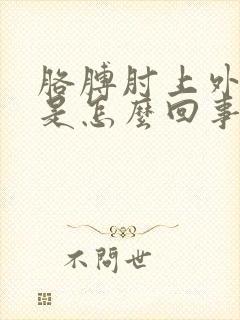 胳膊肘上外
是怎麼回事
不問世